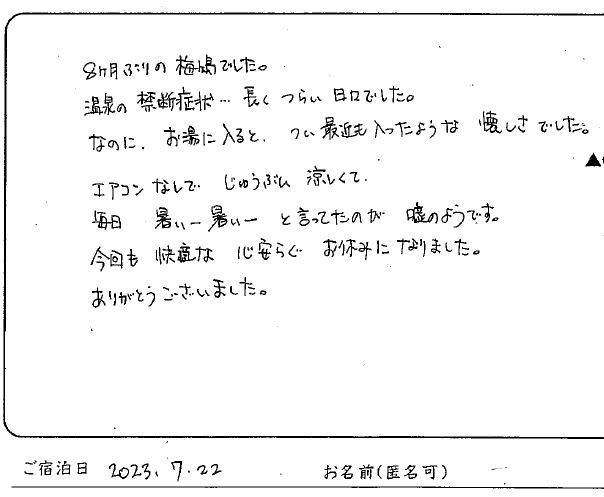 8ヶ月ぶりの 梅鳴でした。
温泉の 禁断症状… 長く つらい 日々でした。
なのに、お湯に入ると、つい最近も入ったような 懐しさ でした。
エアコン なしで じゅうぶん 涼しくて、
毎日 暑いー暑いー と言ってたのが 嘘のようです。
今回も 快適な 心安らぐ お休みに なりました。
ありがとうございました。
ご宿泊日 2023. 7.22 お名前(匿名可)